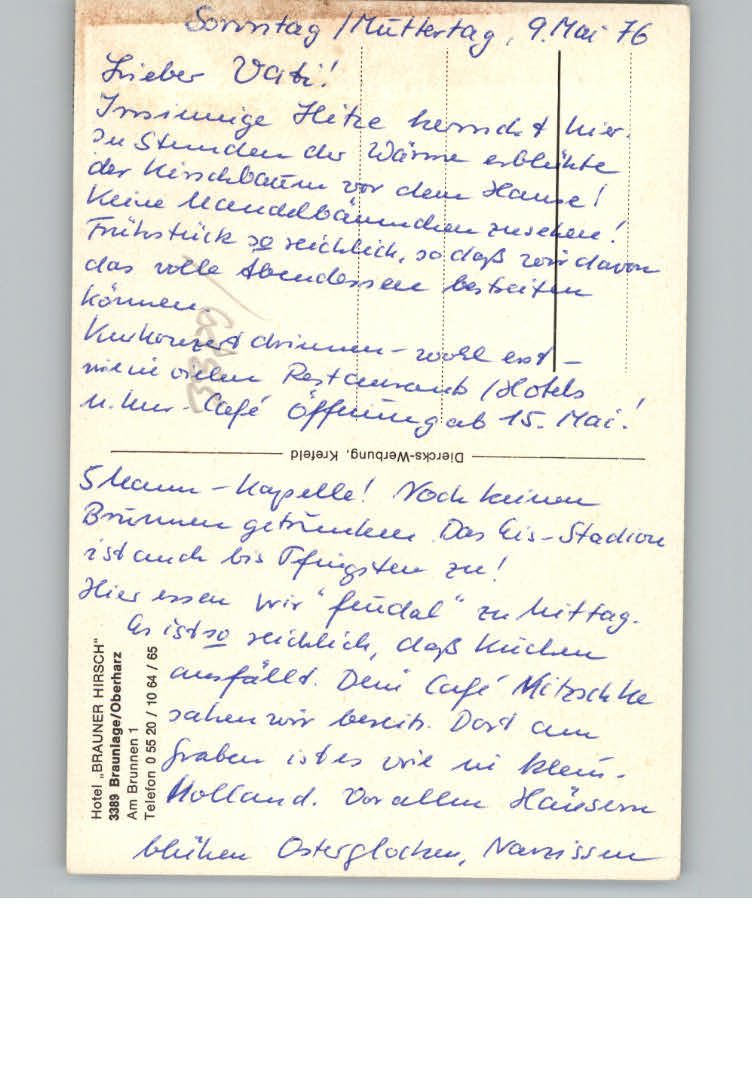 Sonntag / Muttertag, 9. Mai 76
Lieber Vati!
Irrsinnige Hitze herrscht hier.
In Stunden der Wärme erblühte
der Kirschbaum vor dem Hause!
Keine Mandelbäumchen zu sehen!
Frühstück so reichlich, so daß wir davon
das volle Abendessen bestreiten
können.
Kurkonzert drinnen - wohl erst -
wie in vielen Restaurants / Hotels
u. Kur-Café Öffnung ab 15. Mai!
Diercks-Werbung, Krefeld
5 Mann - Kapelle! Noch keinen
Brunnen getrunken. Das Eis-Stadion
ist auch bis Pfingsten zu!
Hier essen wir "feudal" zu Mittag.
Es ist so reichlich, daß Kuchen
ausfällt. Dein Café Mitzschke
sahen wir bereits. Dort am
Graben ist es wie in klein-
Holland. Vor allen Häusern
blühen Osterglocken, Narzissen
Hotel „BRAUNER HIRSCH"
3389 Braunlage/Oberharz
Am Brunnen 1
Telefon 0 55 20 / 10 64 / 65